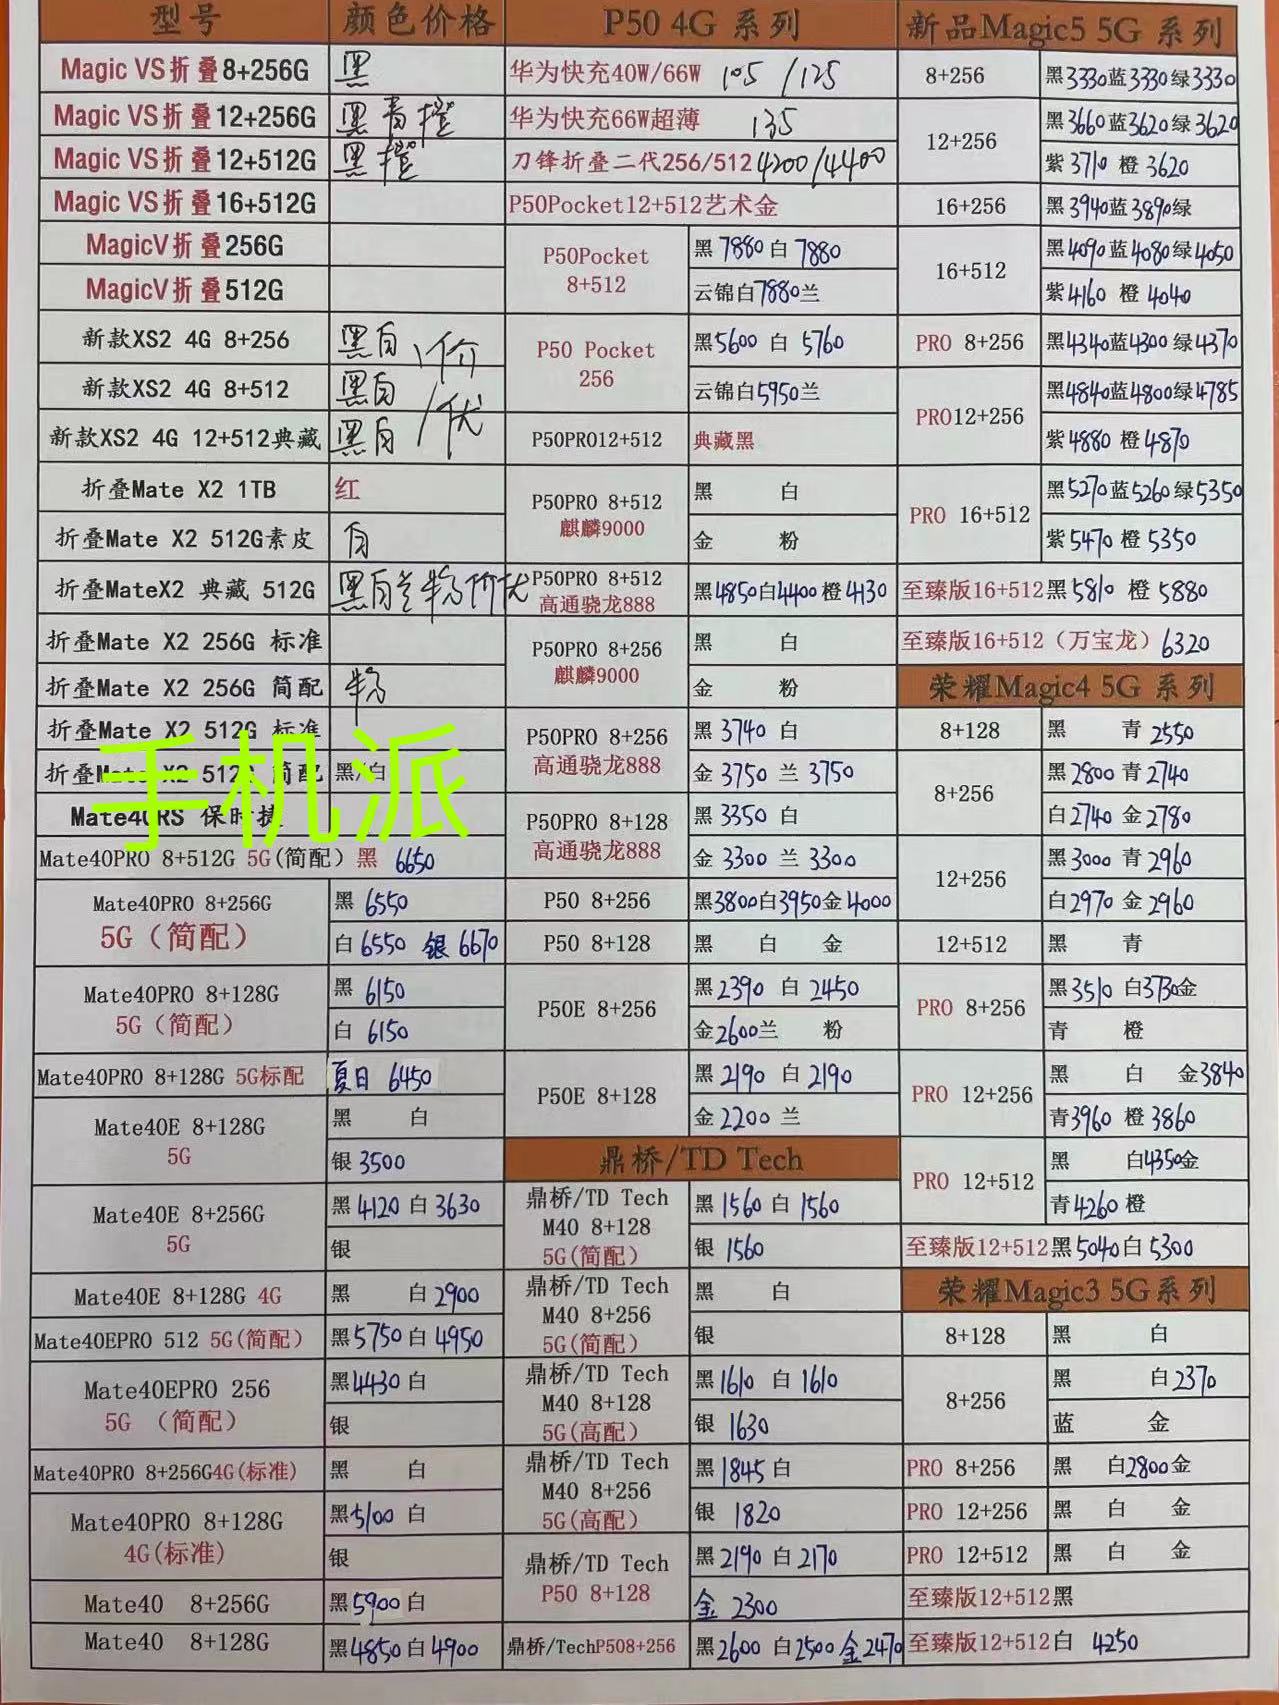 型号 颜色价格
Magic VS折叠8+256G 黑
Magic VS折叠12+256G 黑 青橙
Magic VS折叠12+512G 黑 橙
Magic VS折叠16+512G
MagicV折叠256G
MagicV折叠512G
新款XS2 4G 8+256 黑白
新款XS2 4G 8+512 黑白
新款XS2 4G 12+512典藏 黑白
折叠Mate X2 1TB 红
折叠Mate X2 512G素皮 白
折叠MateX2 典藏 512G 黑白
折叠Mate X2 256G 标准
折叠Mate X2 256G 简配
折叠Mate X2 512G 标准
折叠Mate X2 512G 简配 黑/白
手机派
Mate40RS 保时捷
Mate40PRO 8+512G 5G(简配) 黑 6650
Mate40PRO 8+256G
5G(简配)
黑 6550
白 6550 银 6670
Mate40PRO 8+128G
5G(简配)
黑 6150
白 6150
Mate40PRO 8+128G 5G标配 夏日 6450
Mate40E 8+128G
5G
黑 白
银 3500
Mate40E 8+256G
5G
黑 4120 白 3630
银
Mate40E 8+128G 4G 黑 白 2900
Mate40EPRO 512 5G(简配) 黑5750 白 4950
Mate40EPRO 256
5G (简配)
黑4430 白
银
Mate40PRO 8+256G4G(标准) 黑 白
Mate40PRO 8+128G
4G(标准)
黑5100 白
银
Mate40 8+256G 黑5900 白
Mate40 8+128G 黑4850 白 4900
P50 4G 系列
华为快充40W/66W 105 /125
华为快充66W超薄 135
刀锋折叠二代256/512 4200/4400
P50Pocket12+512艺术金
P50Pocket
8+512
黑 7880 白 7880
云锦白7880兰
P50 Pocket
256
黑5600 白 5760
云锦白5950兰
P50PRO12+512 典藏黑
P50PRO 8+512
麒麟9000
黑 白
金 粉
P50PRO 8+512
高通骁龙888
黑4850白4400橙4130
P50PRO 8+256
麒麟9000
黑 白
金 粉
P50PRO 8+256
高通骁龙888
黑 3740 白
金 3750 兰 3750
P50PRO 8+128
高通骁龙888
黑 3350 白
金 3300 兰 3300
P50 8+256 黑3800白3950金4000
P50 8+128 黑 白 金
P50E 8+256
黑2390 白 2450
金2600兰 粉
P50E 8+128
黑 2190 白 2190
金2200 兰
鼎桥/TD Tech
鼎桥/TD Tech
M40 8+128
5G(简配)
黑1560 白 1560
银 1560
鼎桥/TD Tech
M40 8+256
5G(简配)
黑 白
银
鼎桥/TD Tech
M40 8+128
5G(高配)
黑1610 白 1610
银 1630
鼎桥/TD Tech
M40 8+256
5G(高配)
黑1845 白
银 1820
鼎桥/TD Tech
P50 8+128
黑2190 白2170
金 2300
鼎桥/TechP508+256 黑2600 白2500金2470
新品Magic5 5G 系列
8+256 黑3330蓝3330绿3330
12+256
黑3660蓝3620绿3620
紫3710 橙 3620
16+256 黑3940蓝3890绿
16+512
黑4090蓝4080绿4050
紫4160 橙 4040
PRO 8+256 黑4340蓝4300绿4370
PRO12+256
黑4840蓝4800绿4785
紫4880 橙4870
PRO 16+512
黑5270蓝5260绿5350
紫5470 橙5350
至臻版16+512黑5810 橙 5880
至臻版16+512(万宝龙) 6320
荣耀Magic4 5G 系列
8+128 黑 青 2550
8+256
黑2800 青2740
白2740 金2780
12+256
黑3000 青2960
白2970 金2960
12+512 黑 青
PRO 8+256
黑3510 白3730金
青 橙
PRO 12+256
黑 白 金3840
青3960 橙 3860
PRO 12+512
黑 白4350金
青4260橙
至臻版12+512黑5040白5300
荣耀Magic3 5G系列
8+128 黑 白
8+256
黑 白2370
蓝 金
PRO 8+256 黑 白2800金
PRO 12+256 黑 白 金
PRO 12+512 黑 白 金
至臻版12+512黑
至臻版12+512白 4250